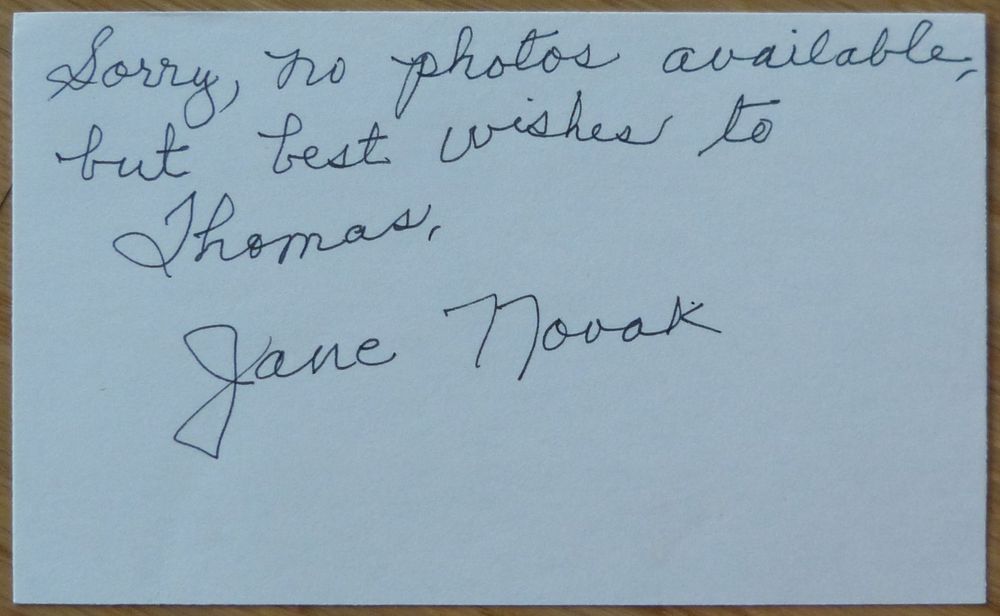 Sorry, no photos available,
but best wishes to
Thomas,
Jane Novak